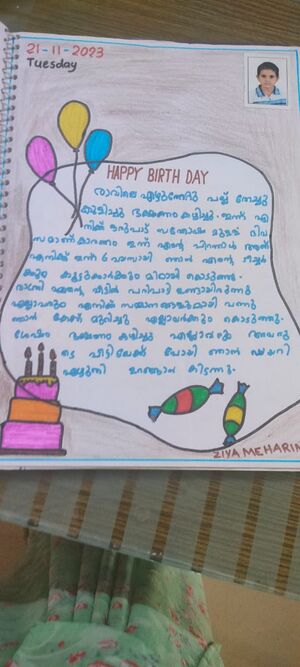 21-11-2023
Tuesday
HAPPY BIRTH DAY
രാവിലെ എഴുന്നേറ്റു പല്ല് തേച്ചു
കുളിച്ചു ഭക്ഷണം കഴിച്ചു. ഇന്ന് എ
നിക്ക് ഒരുപാട് സന്തോഷം മുള്ള ദിവ
സമാണ് കാരണം ഇന്ന് എന്റെ പിറന്നാൾ ആണ്
എനിക്ക് ഇന്ന് 6 വയസായി ഞാൻ എന്റെ ടീച്ചർ
ക്കും കൂട്ടുകാർക്കും മിഠായി കൊടുത്തു.
രാത്രി എന്റെ വീട്ടിൽ പരിപാടി ഉണ്ടായിരുന്നു
എല്ലാവരും എനിക്ക് സമ്മാനങ്ങളുമായി വന്നു
ഞാൻ കേക്ക് മുറിച്ചു എല്ലാവർക്കും കൊടുത്തു.
ശേഷം ഭക്ഷണം കഴിച്ചു എല്ലാവരും അവരു
ടെ വീട്ടിലേക്ക് പോയി ഞാൻ ഡയറി
എഴുതി ഉറങ്ങാൻ കിടന്നു.
ZIYA MEHARIN